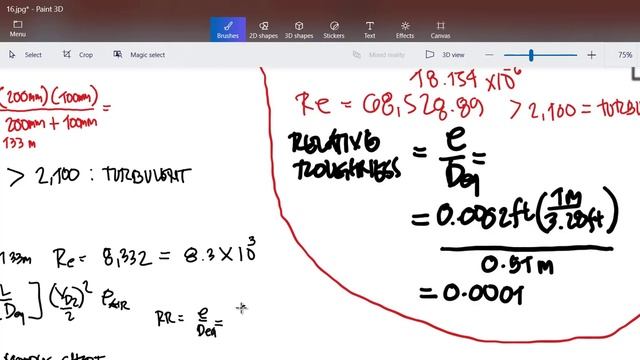 16.jpg* - Paint 3D
Menu
Brushes
2D shapes
3D shapes
Stickers
Text
Effects
Canvas
Select
Crop
Magic select
Mixed reality
3D view
75%
(200mm)(100mm) =
200mm + 100mm
133 m
> 2,100 : TURBULENT
133m Re = 8,332 = 8.3 × 10³
Deq ] (V_D2)² ρ_AIR
2
RR = e =
Deq
18.154 × 10⁻⁶
Re = 68,528.89 > 2,100 = TURB
RELATIVE ROUGHNESS = e =
Deq
= 0.0002ft (1m
3.28ft)
0.51m
= 0.0001